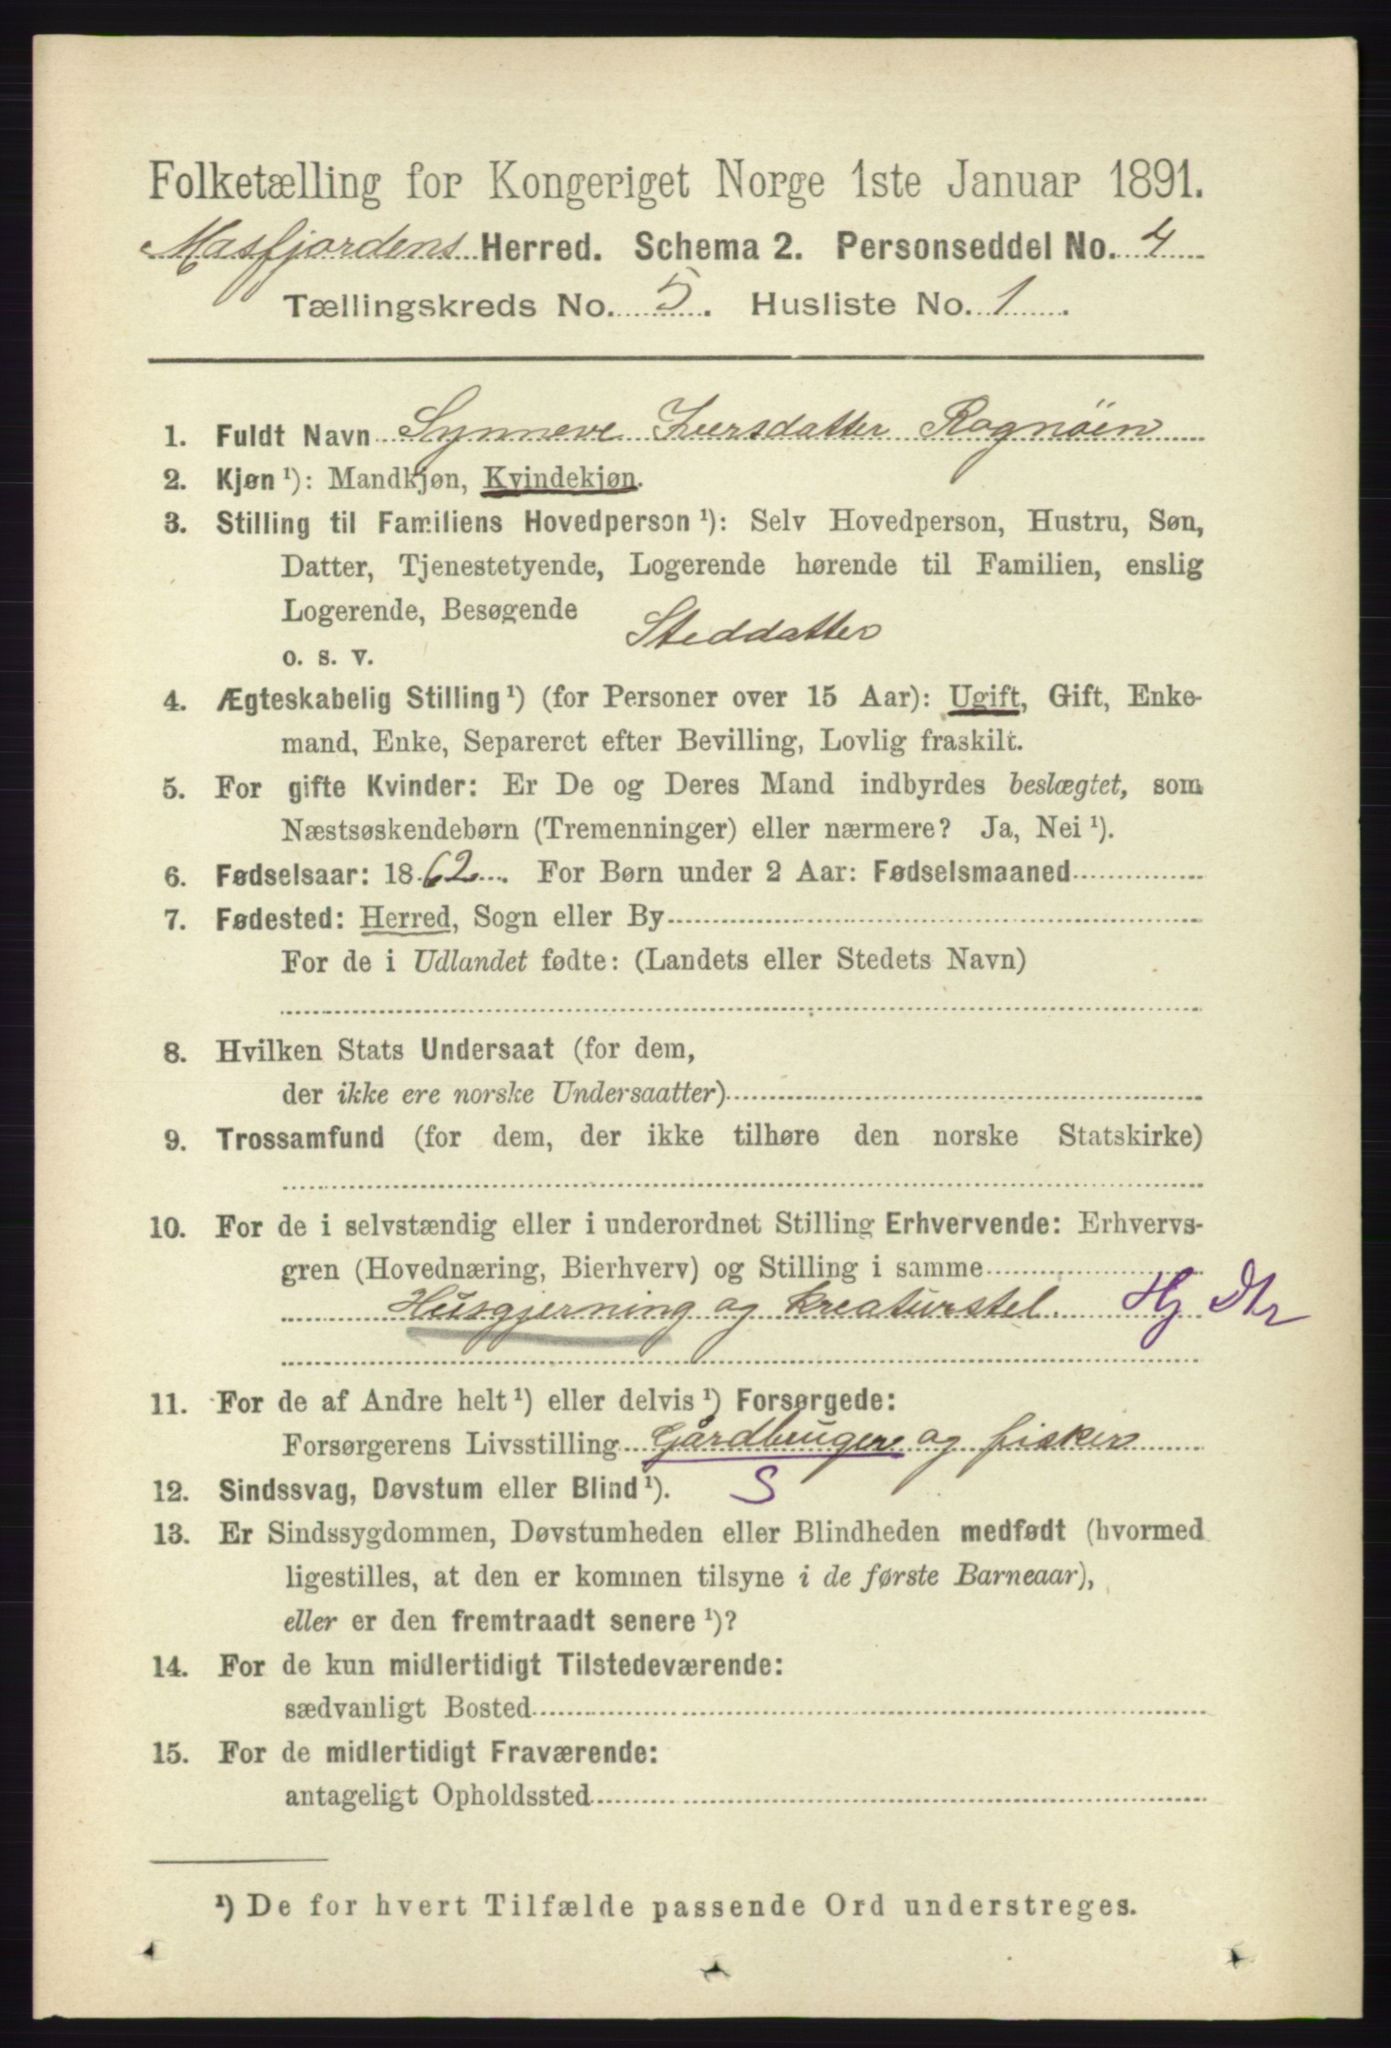 Folketælling for Kongeriget Norge 1ste Januar 1891.
Masfjordens Herred. Schema 2. Personseddel No. 4
Tællingskreds No. 5. Husliste No. 1.
1. Fuldt Navn Synneve Iversdatter Rognøen
2. Kjøn ¹): Mandkjøn, Kvindekjøn.
3. Stilling til Familiens Hovedperson ¹): Selv Hovedperson, Hustru, Søn,
Datter, Tjenestetyende, Logerende hørende til Familien, enslig
Logerende, Besøgende
Steddatter
o. s. v.
4. Ægteskabelig Stilling ¹) (for Personer over 15 Aar): Ugift, Gift, Enke-
mand, Enke, Separeret efter Bevilling, Lovlig fraskilt.
5. For gifte Kvinder: Er De og Deres Mand indbyrdes beslægtet, som
Næstsøskendebørn (Tremenninger) eller nærmere? Ja, Nei ¹).
6. Fødselsaar: 1862. For Børn under 2 Aar: Fødselsmaaned
7. Fødested: Herred, Sogn eller By
For de i Udlandet fødte: (Landets eller Stedets Navn)
8. Hvilken Stats Undersaat (for dem,
der ikke ere norske Undersaatter)
9. Trossamfund (for dem, der ikke tilhøre den norske Statskirke)
10. For de i selvstændig eller i underordnet Stilling Erhvervende: Erhvervs-
gren (Hovednæring, Bierhverv) og Stilling i samme
Husgjerning og kreaturstel. Hj Dtr
11. For de af Andre helt ¹) eller delvis ¹) Forsørgede:
Forsørgerens Livsstilling Gårdbruger og fisker
12. Sindssvag, Døvstum eller Blind ¹). S
13. Er Sindssygdommen, Døvstumheden eller Blindheden medfødt (hvormed
ligestilles, at den er kommen tilsyne i de første Barneaar),
eller er den fremtraadt senere ¹)?
14. For de kun midlertidigt Tilstedeværende:
sædvanligt Bosted
15. For de midlertidigt Fraværende:
antageligt Opholdssted
¹) De for hvert Tilfælde passende Ord understreges.